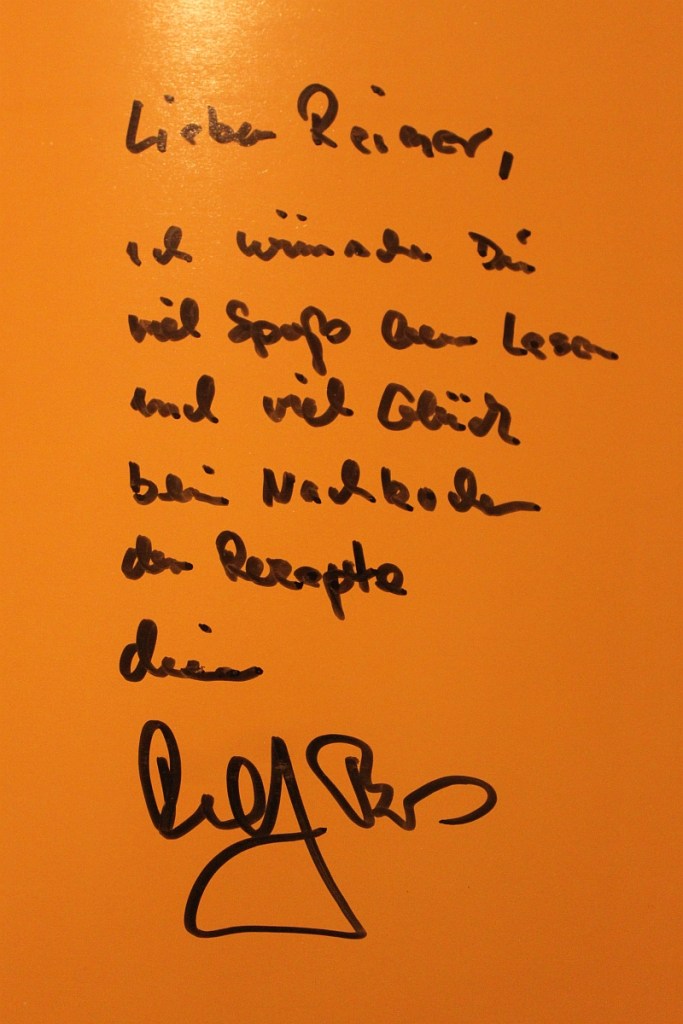 Lieber Reimer,
ich wünsche Dir
viel Spaß beim Lesen
und viel Glück
beim Nachkochen
der Rezepte
dein
Ralf